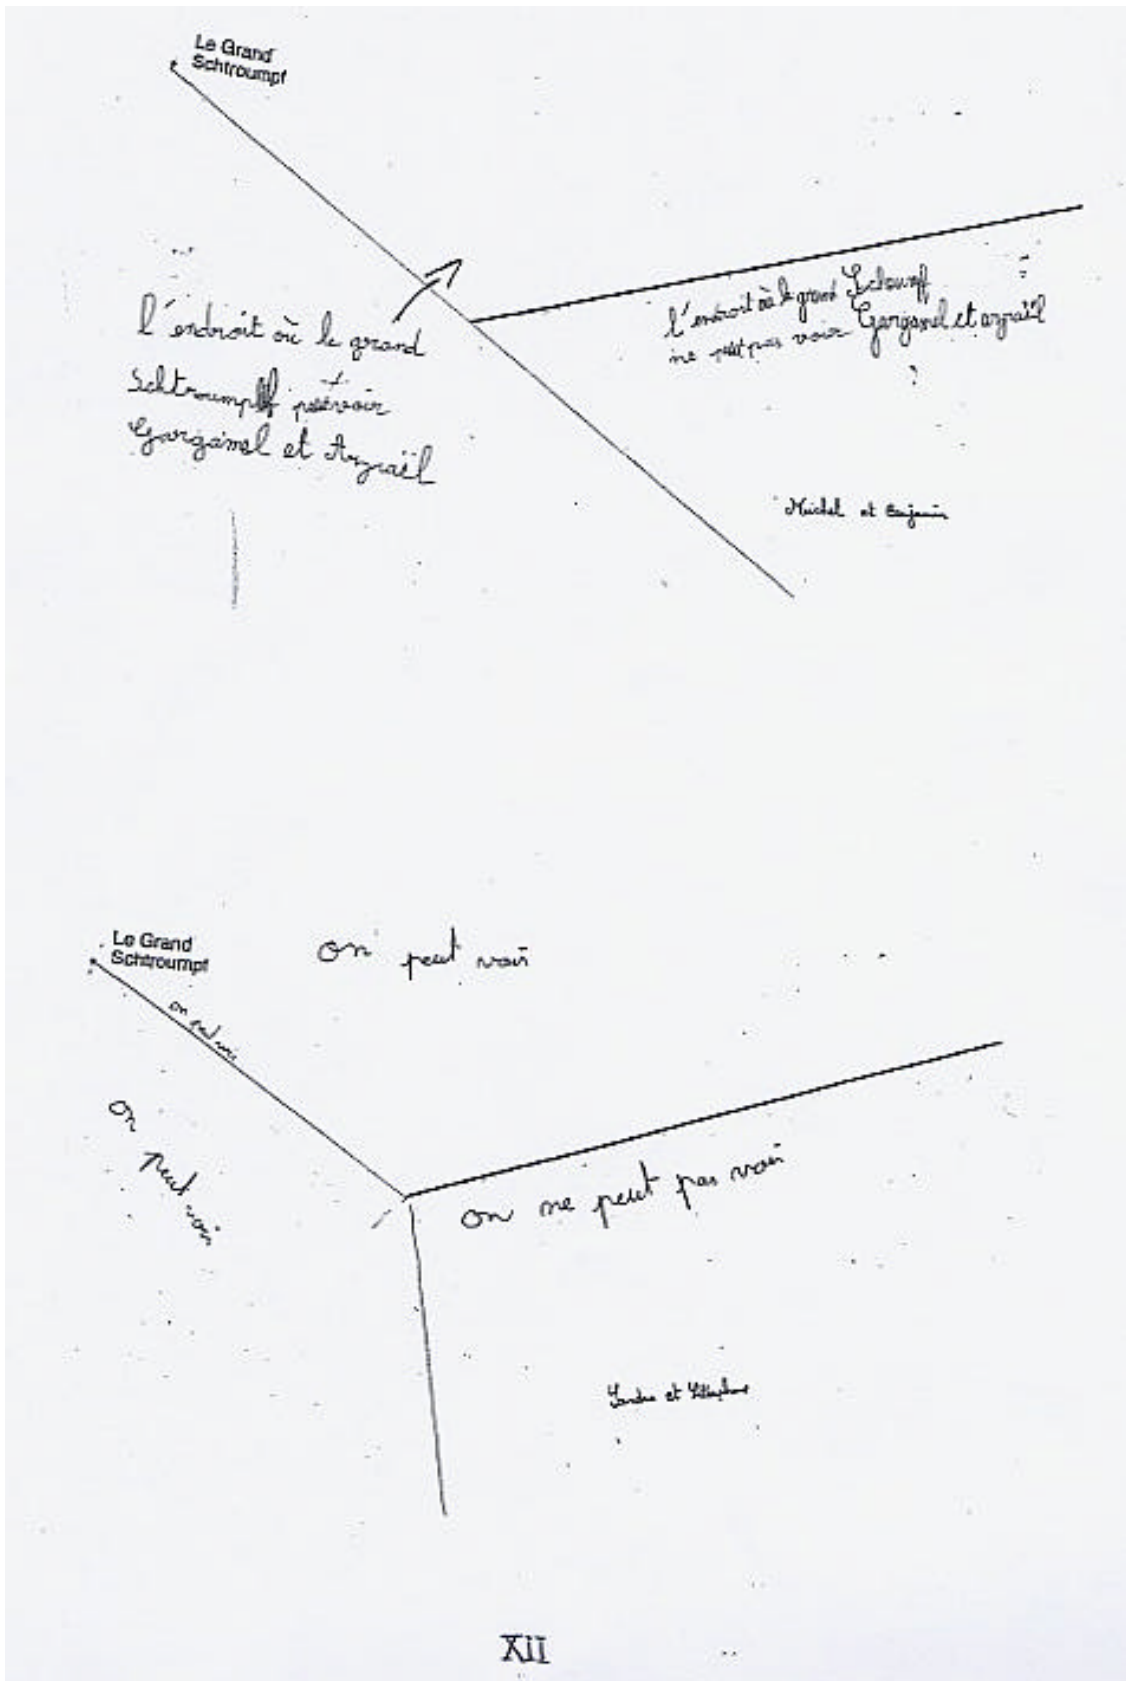 Le Grand
Schtroumpf
l'endroit où le grand
Schtroumpff peut voir
Gargamel et Azraël
l'endroit où le grand Schoumff
ne peut pas voir Gargamel et azraël
?
Michel et Benjamin
Le Grand
Schtroumpf
on peut voir
on peut voir
on peut voir
on ne peut pas voir
et
XII